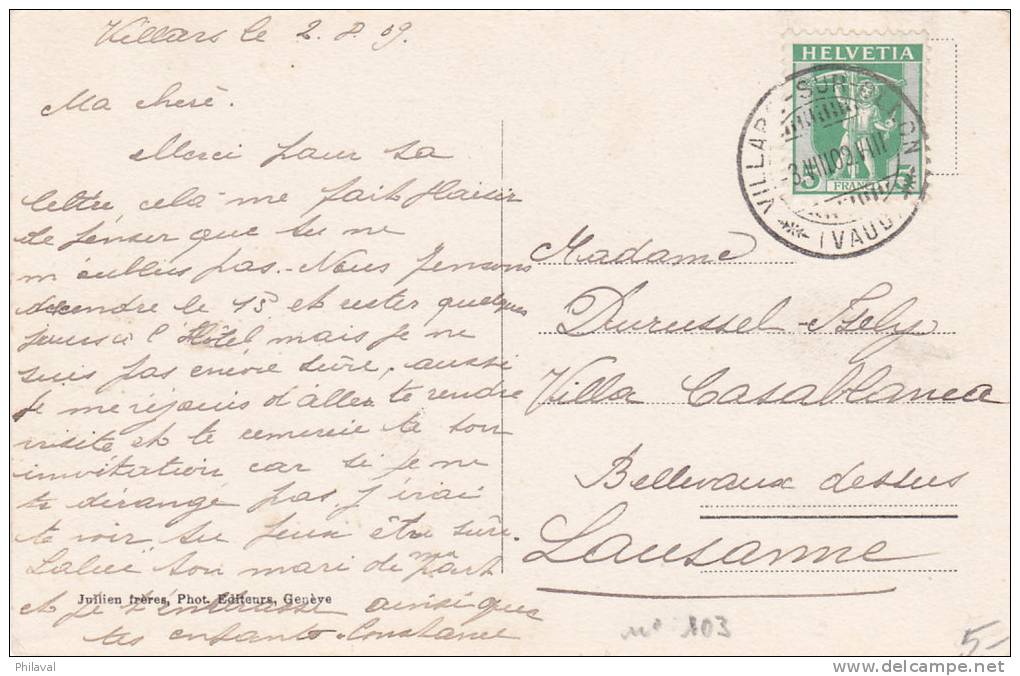 Villars le 2. 8. 09.
Ma cheré.
Merci pour ta
lettre, cela me fait plaisir
de penser que tu ne
m'oublies pas. - Nous pensons
descendre le 15 et rester quelques
jours à l'Hôtel mais je ne
suis pas encore sûre, aussi
je me réjouis d'aller te rendre
visite et te remercie de ton
invitation car si je ne
te dérange pas j'irai
te voir tu peux être sûre.
Salue ton mari de ma part
et je t'embrasse ainsi que
tes enfants. Constance
Jullien frères, Phot. Editeurs, Genève
HELVETIA
5 5
FRANCO
VILLARS-SUR-OLLON
(VAUD)
Madame
Durussel-Isely
Villa Casablanca
Bellevaux dessus
Lausanne
n° 103
5-
Philaval
www.delcampe.net